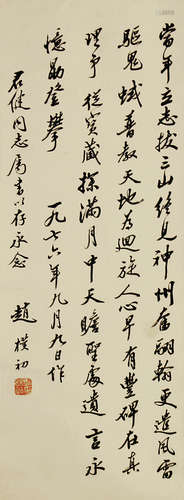 當年立志拔三山終見神州奮翮翰更遣風雷
驅鬼蜮普教天地為迴旋人心早有豐碑在真
理爭從寶藏探滿月中天瞻聖處遺言永
憶勵登攀
一九七六年九月九日作
石健同志屬書以存永念
趙樸初